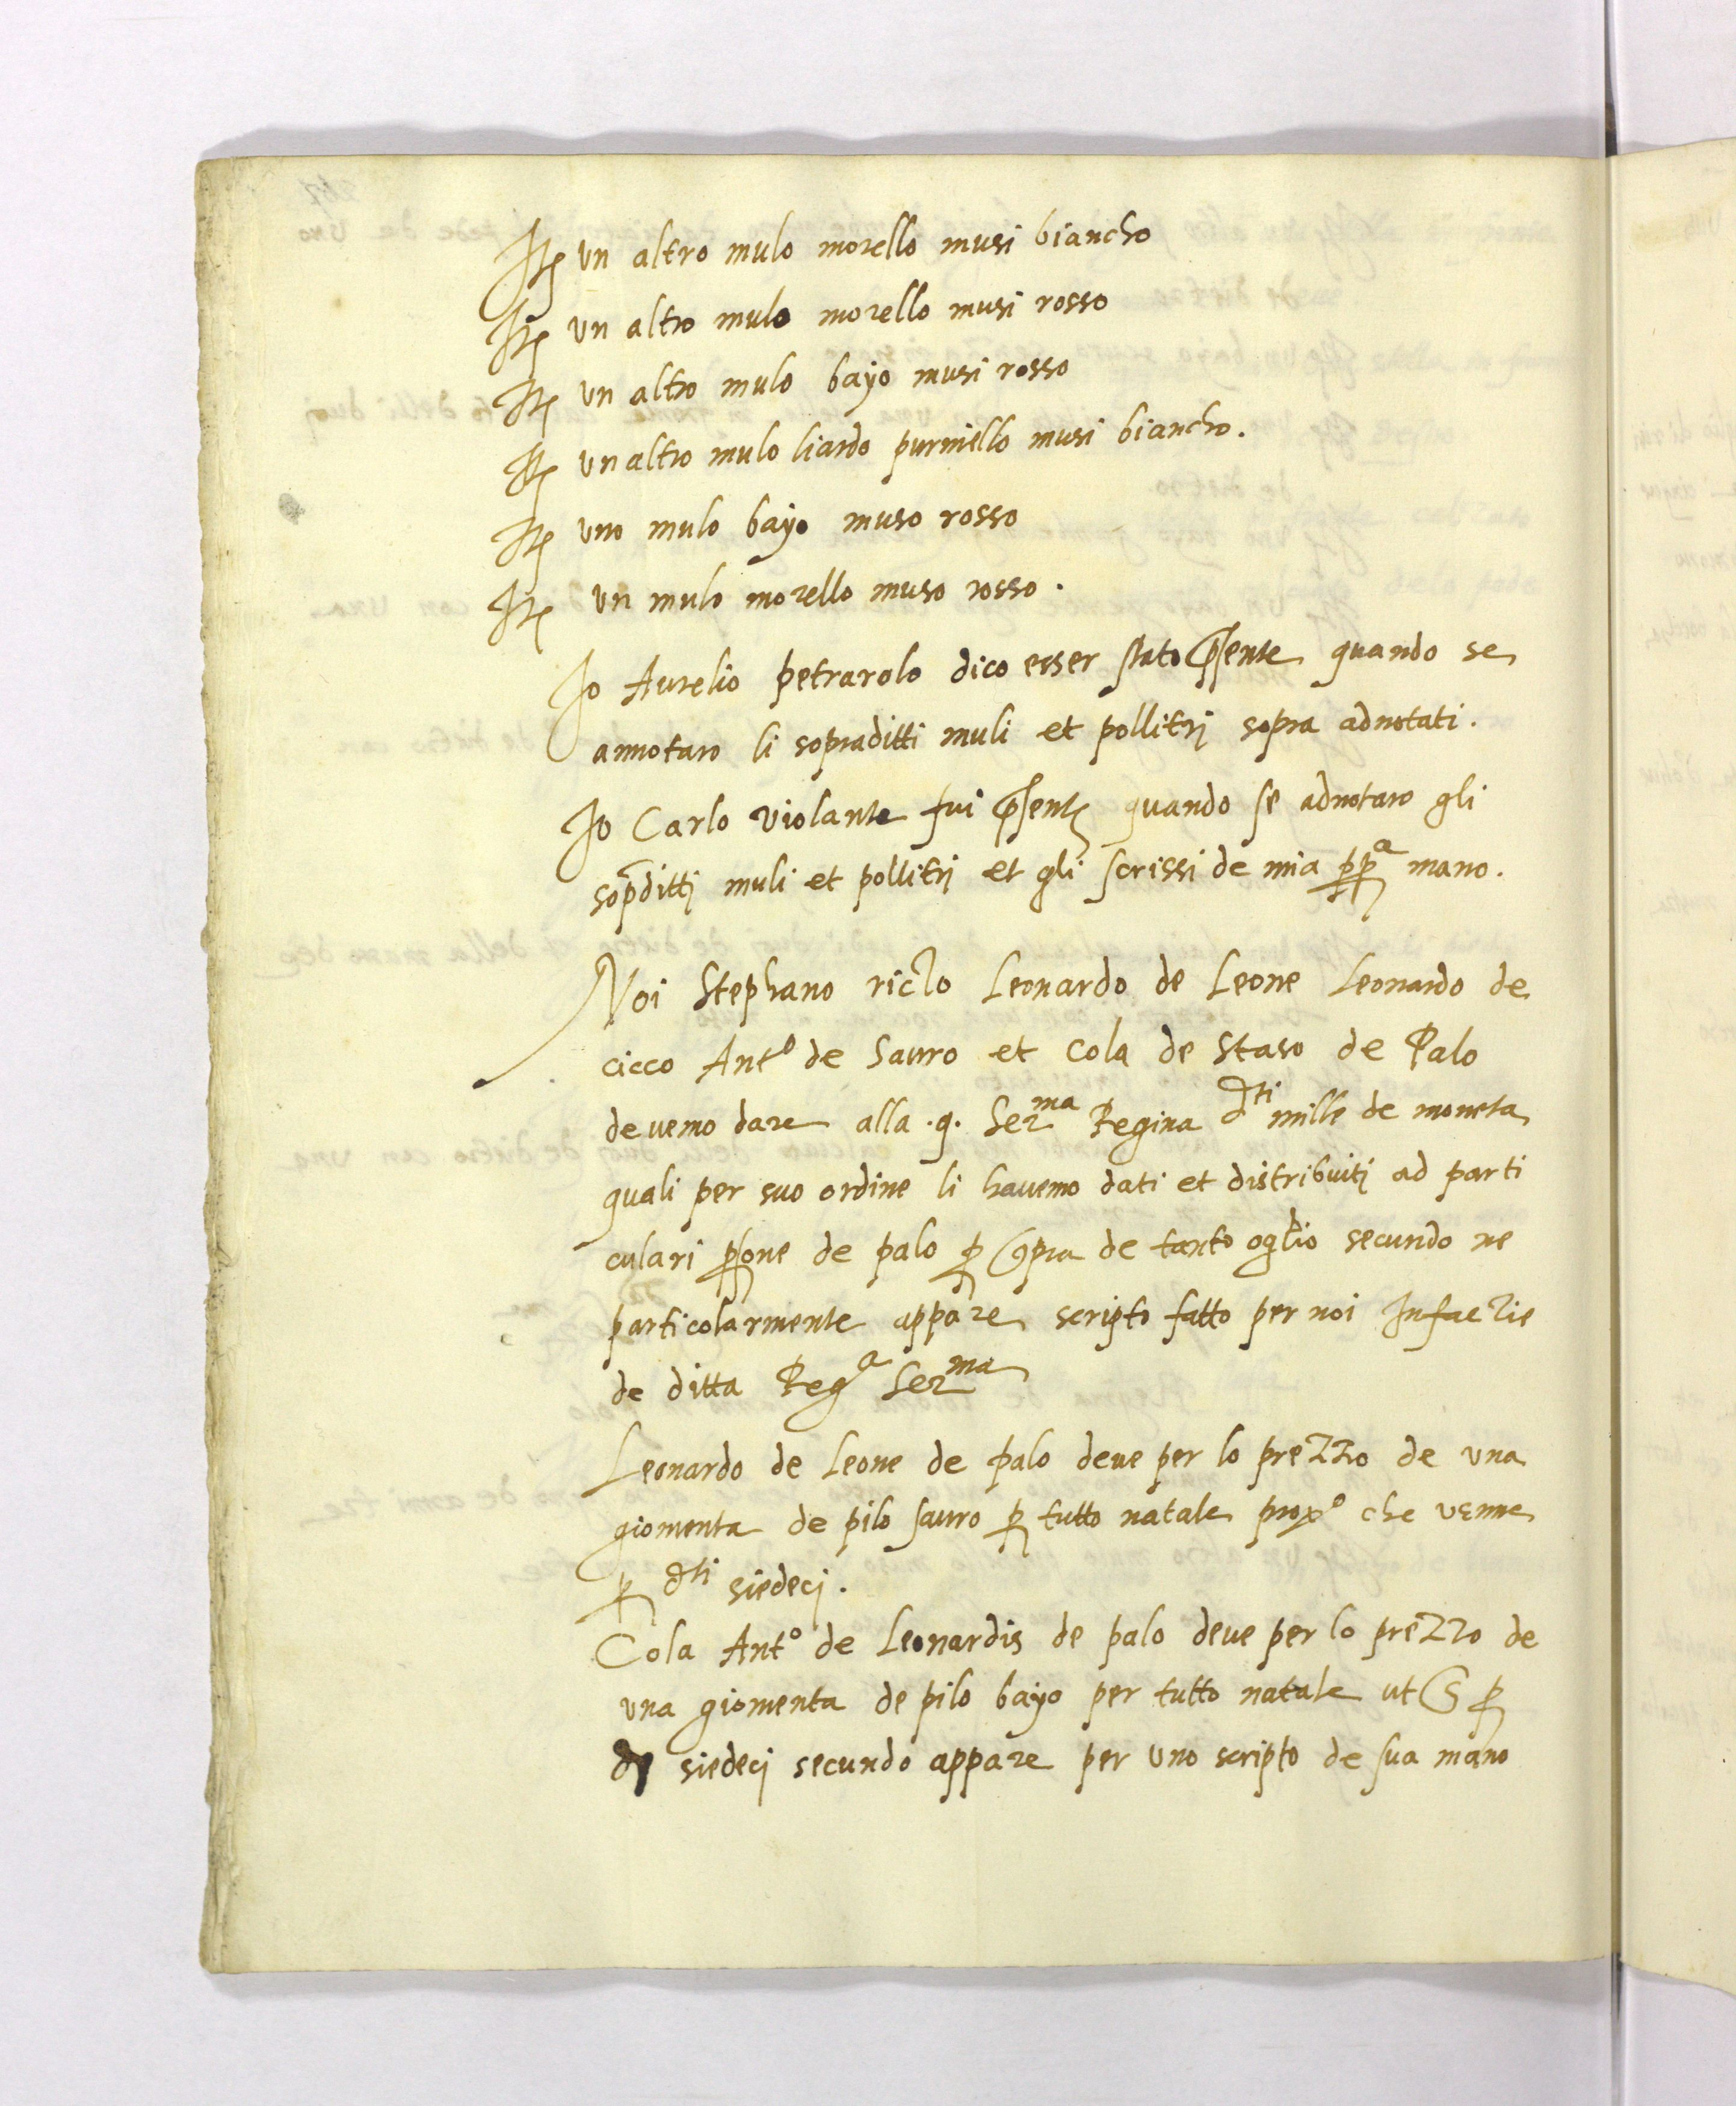 Itē un altro mulo morello musi biancho
Itē un altro mulo morello musi rosso
Itē un altro mulo bayo musi rosso
Itē un altro mulo liardo purniello musi biancho.
Itē uno mulo bayo muso rosso
Itē un mulo morello muso rosso.
Io Aurelio petrarolo dico esser stato p̄sente quando se
annotaro li sopraditti muli et pollitrj sopra adnotati.
Io Carlo violante fui p̄sentē quando se adnotaro gli
sop̄dittj muli et pollitrj et gli scrissi de mia ꝑpª mano.
Noi Stephano ricło Leonardo de Leone Leonardo de
cicco Antº de Sauro et Cola de Staso de Palo
devemo dare alla .q. Serᵐᵃ Regina dᵗⁱ mille de moneta
quali per suo ordine li havemo dati et distribuitj ad parti
culari ꝑsone de palo ꝑ ꝯpra de tanto oglio secundo ne
particolarmente appare scripto fatto per noi In
de ditta Regª Serᵐᵃ
Leonardo de Leone de palo deve per lo prezzo de una
giomenta de pilo sauro ꝑ tutto natale proxº che venne
ꝑ dᵗⁱ siedecj.
Cola Antº de Leonardis de palo deve per lo prezzo de
una giomenta de pilo bayo per tutto natale ut s̄ ꝑ
siedecj secundo appare per uno scripto de sua mano